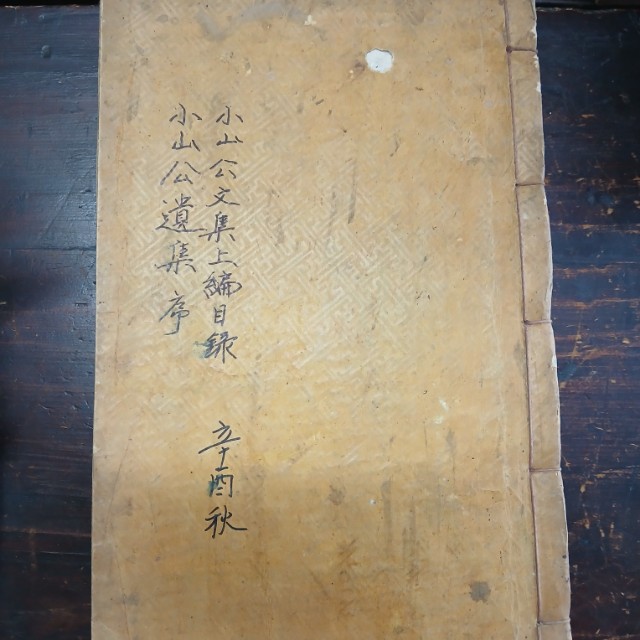 小山公文集上編目錄 辛酉秋
小山公遺集序